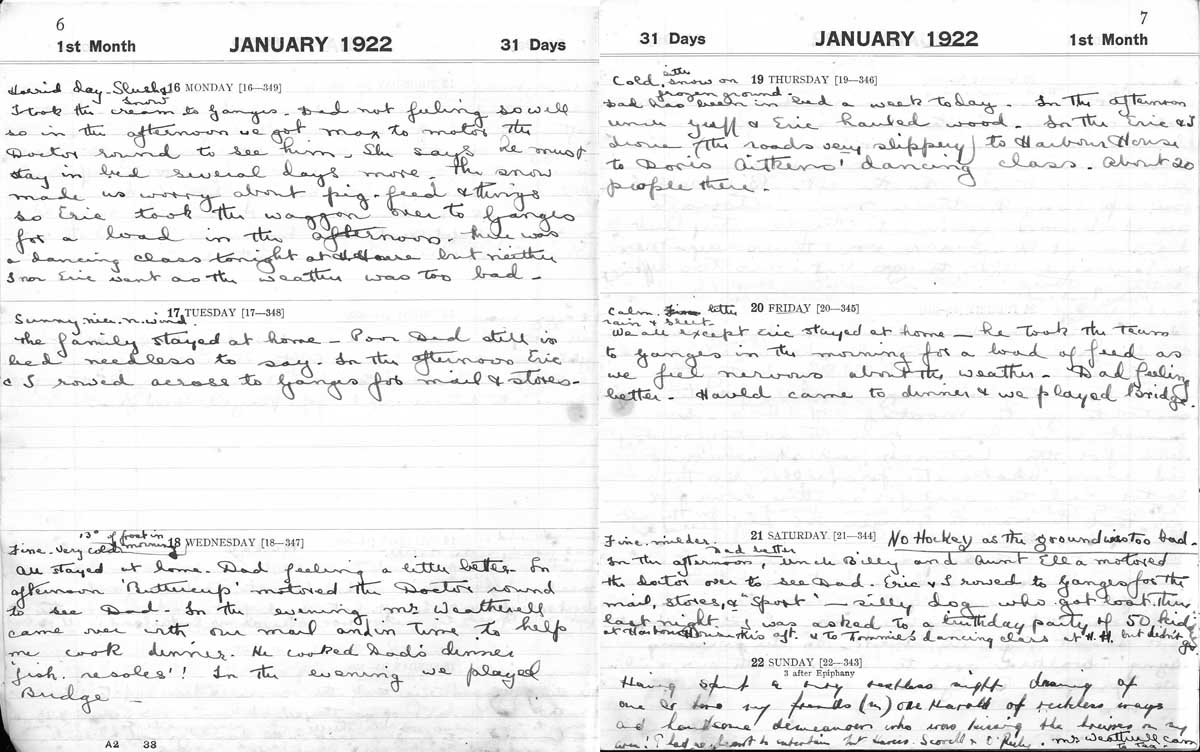 6
1st Month JANUARY 1922 31 Days
Horrid day - Slushy 16 MONDAY [16—349]
snow
I took the cream to Ganges. Dad not feeling so well
so in the afternoon we got Max to motor the
Doctor round to see him. She says he must
stay in bed several days more. The snow
made us worry about pig-feed & things
so Eric took the waggon over to Ganges
for a load in the afternoon. There was
a dancing class tonight at H. House but neither
I nor Eric went as the weather was too bad -
17 TUESDAY [17—348]
Sunny nice. N. wind.
The family stayed at home - Poor Dad still in
bed needless to say. In the afternoon Eric
& I rowed across to Ganges for mail & stores-
13° of frost in
Fine. very cold morning 18 WEDNESDAY [18—347]
All stayed at home. Dad feeling a little better. In
afternoon 'Buttercup' motored the Doctor round
to see Dad. In the evening Mr Weatherell
came over with our mail and in time to help
me cook dinner. He cooked Dad's dinner
fish resoles!! In the evening we played
Bridge -
A2 38
7
31 Days JANUARY 1922 1st Month
Cold, snow on 19 THURSDAY [19—346]
frozen ground.
Dad has been in bed a week today. In the afternoon
Uncle Geoff & Eric hauled wood. In the Eric & I
drove (the roads very slippery) to Harbour House
to Doris Aitkens' dancing class. About 20
people there.
Calm. better 20 FRIDAY [20—345]
rain & sleet.
We all except Eric stayed at home - he took the team
to Ganges in the morning for a load of feed as
we feel nervous about the weather. Dad feeling
better. Harold came to dinner & we played Bridge.
Fine. milder. 21 SATURDAY. [21—344] No Hockey as the ground was too bad.
Dad better
In the afternoon, Uncle Billy and Aunt Ella motored
the doctor over to see Dad. Eric & I rowed to Ganges for the
mail, stores, & "Sport" - silly dog who got lost there
last night. I was asked to a birthday party of 50 kids
at Harbour House this aft. & to Tommie's dancing class at H.H. but didn't
go.
22 SUNDAY [22—343]
3 after Epiphany
Having spent a very restless night dreaming of
one or two my friends (in) one Harold of reckless ways
and handsome demeanour who was kissing the bruises on my
arm! I had to entertain Scovell & Mr Weatherell came